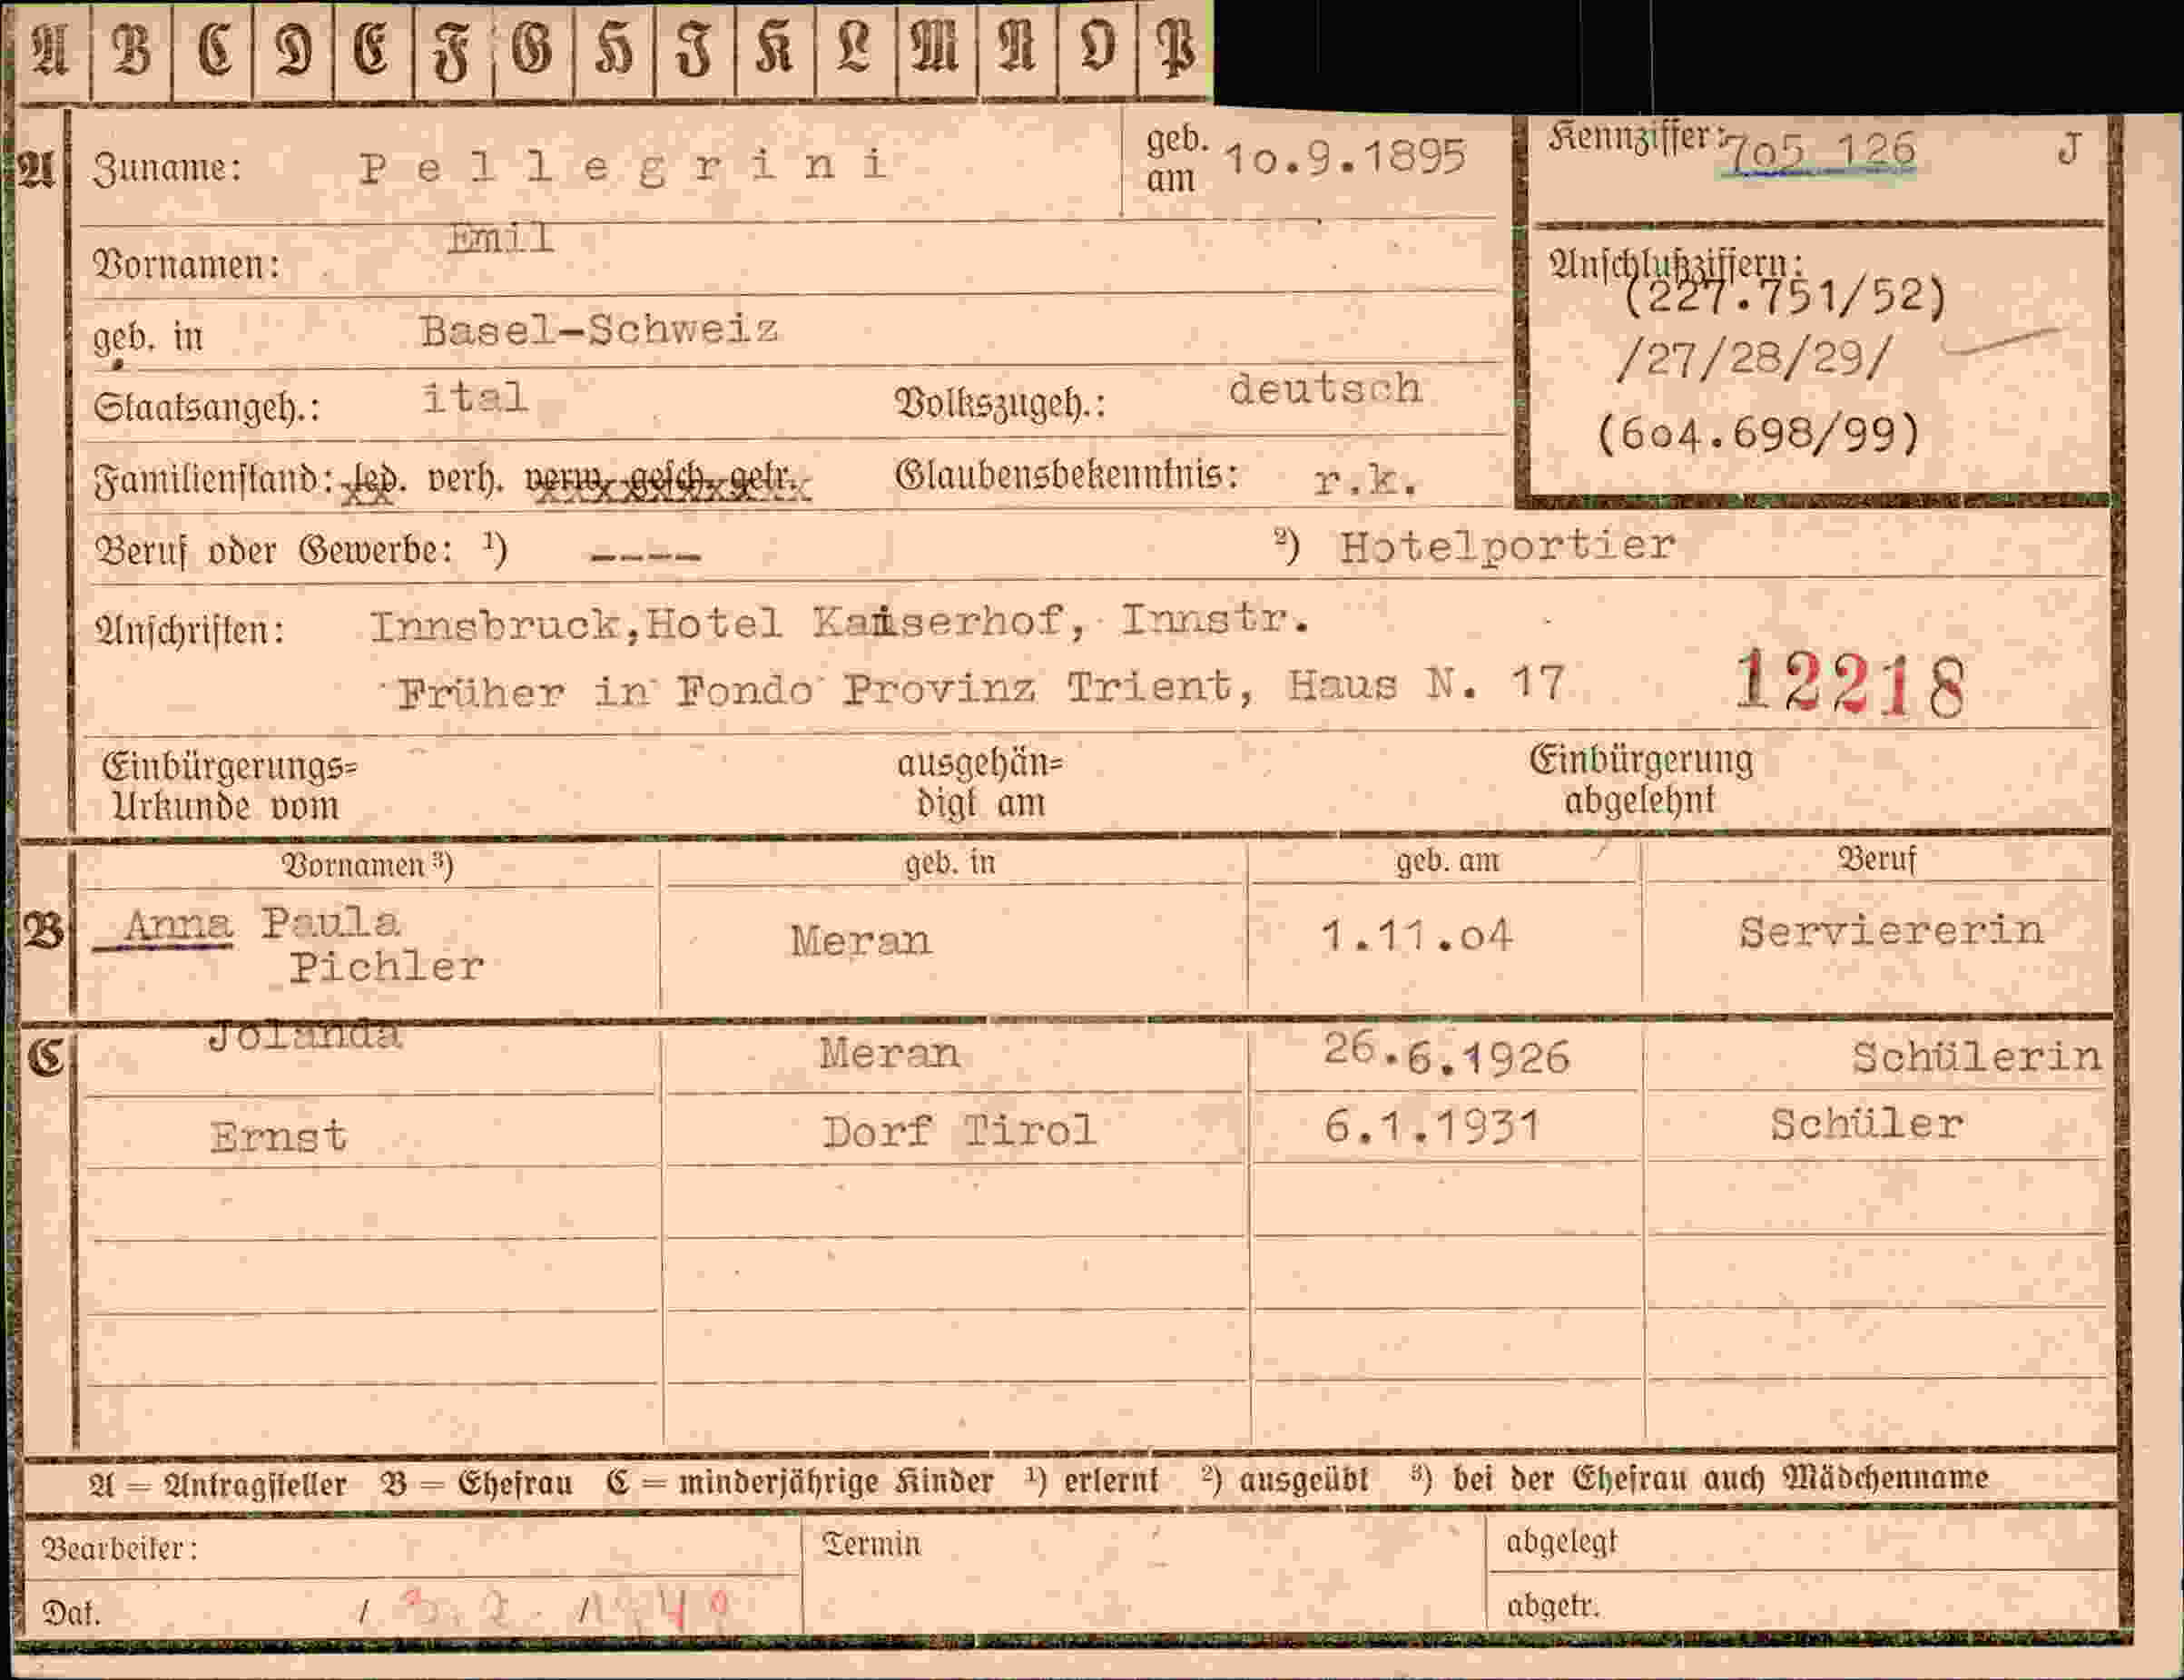 A B C D E F G H J K L M N O P
A Zuname: Pellegrini geb. am 10.9.1895 Kennziffer: 705 126 J
Vornamen: Emil
Anschlußziffern: (227.751/52)
/27/28/29/
(604.698/99)
geb. in Basel-Schweiz
Staatsangeh.: ital Volkszugeh.: deutsch
Familienstand: led. verh. verw. gesch. getr. Glaubensbekenntnis: r.k.
Beruf oder Gewerbe: ¹) ---- ²) Hotelportier
Anschriften: Innsbruck,Hotel Kaiserhof, Innstr.
Früher in Fondo Provinz Trient, Haus N. 17 12218
Einbürgerungs= ausgehän= Einbürgerung
Urkunde vom digt am abgelehnt
Vornamen ³) geb. in geb. am Beruf
B Anna Paula Meran 1.11.04 Serviererin
Pichler
C Jolanda Meran 26.6.1926 Schülerin
Ernst Dorf Tirol 6.1.1931 Schüler
A = Antragsteller B = Ehefrau C = minderjährige Kinder ¹) erlernt ²) ausgeübt ³) bei der Ehefrau auch Mädchenname
Bearbeiter: Termin abgelegt
Dat. abgetr.